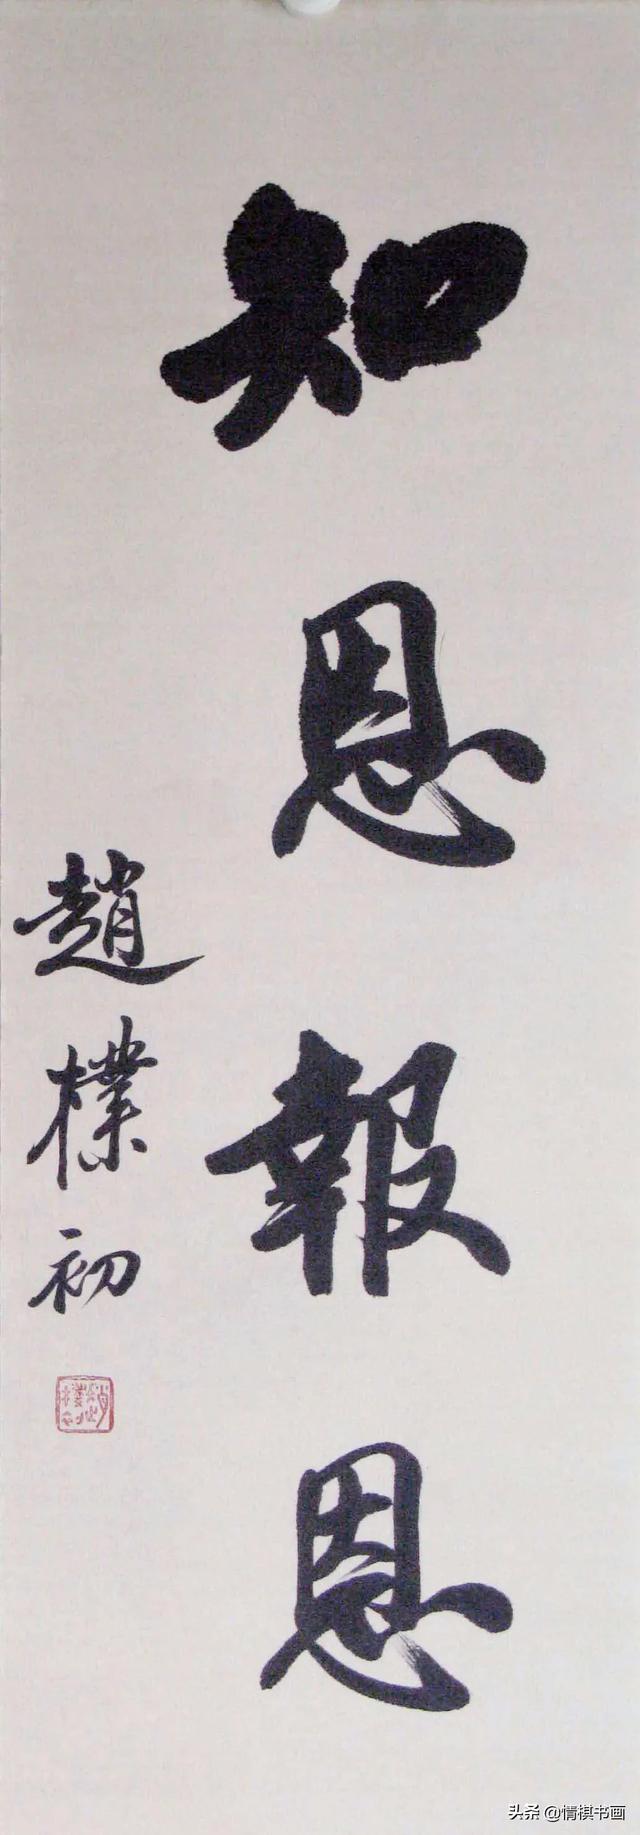 知恩報恩
趙樸初
头条 @情棋书画